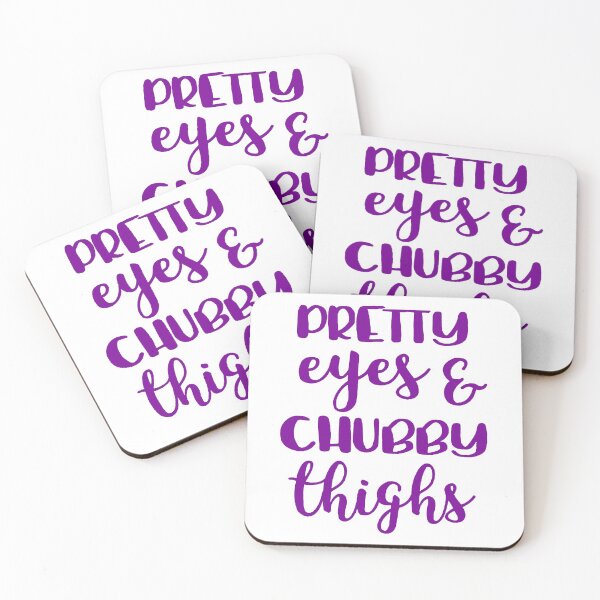 PRETTY
eyes &
PRETTY
eyes &
CHUBBY
PRETTY
eyes &
CHUBBY
thighs
PRETTY
eyes &
CHUBBY
thighs